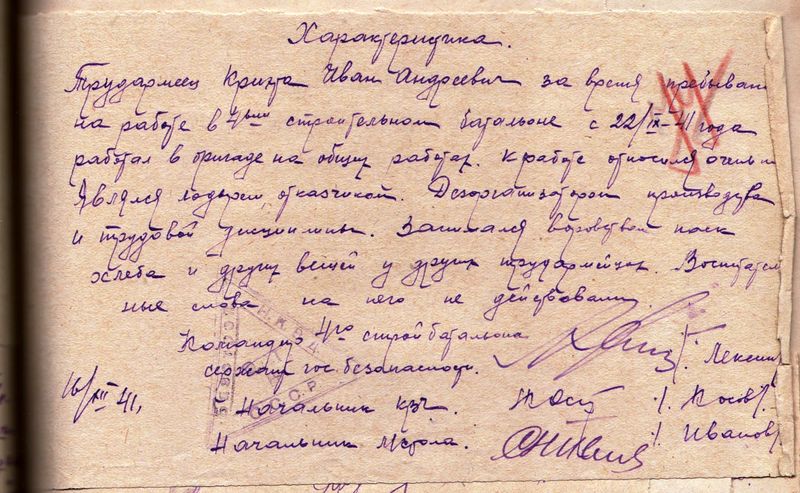 Характеристика.
Трудармеец Кринта Иван Андреевич за время пребыван
на работе в 4ом строительном батальоне с 22/IX-41 года
работал в бригаде на общих работах. К работе относился очень
Являлся лодырем отказчиком. Дезорганизатором производства
и трудовой дисциплины. Занимался воровством паек
хлеба и других вещей у других трудармейцев. Воспитател
ные слова на него не действовали.
Командир 4го стройбатальона
сержант гос. безопасности.
16/XII 41,
Начальник КВЧ.
Начальник Истола. /. Иванов/.
Н.К.В.Д.
С.С.С.Р.